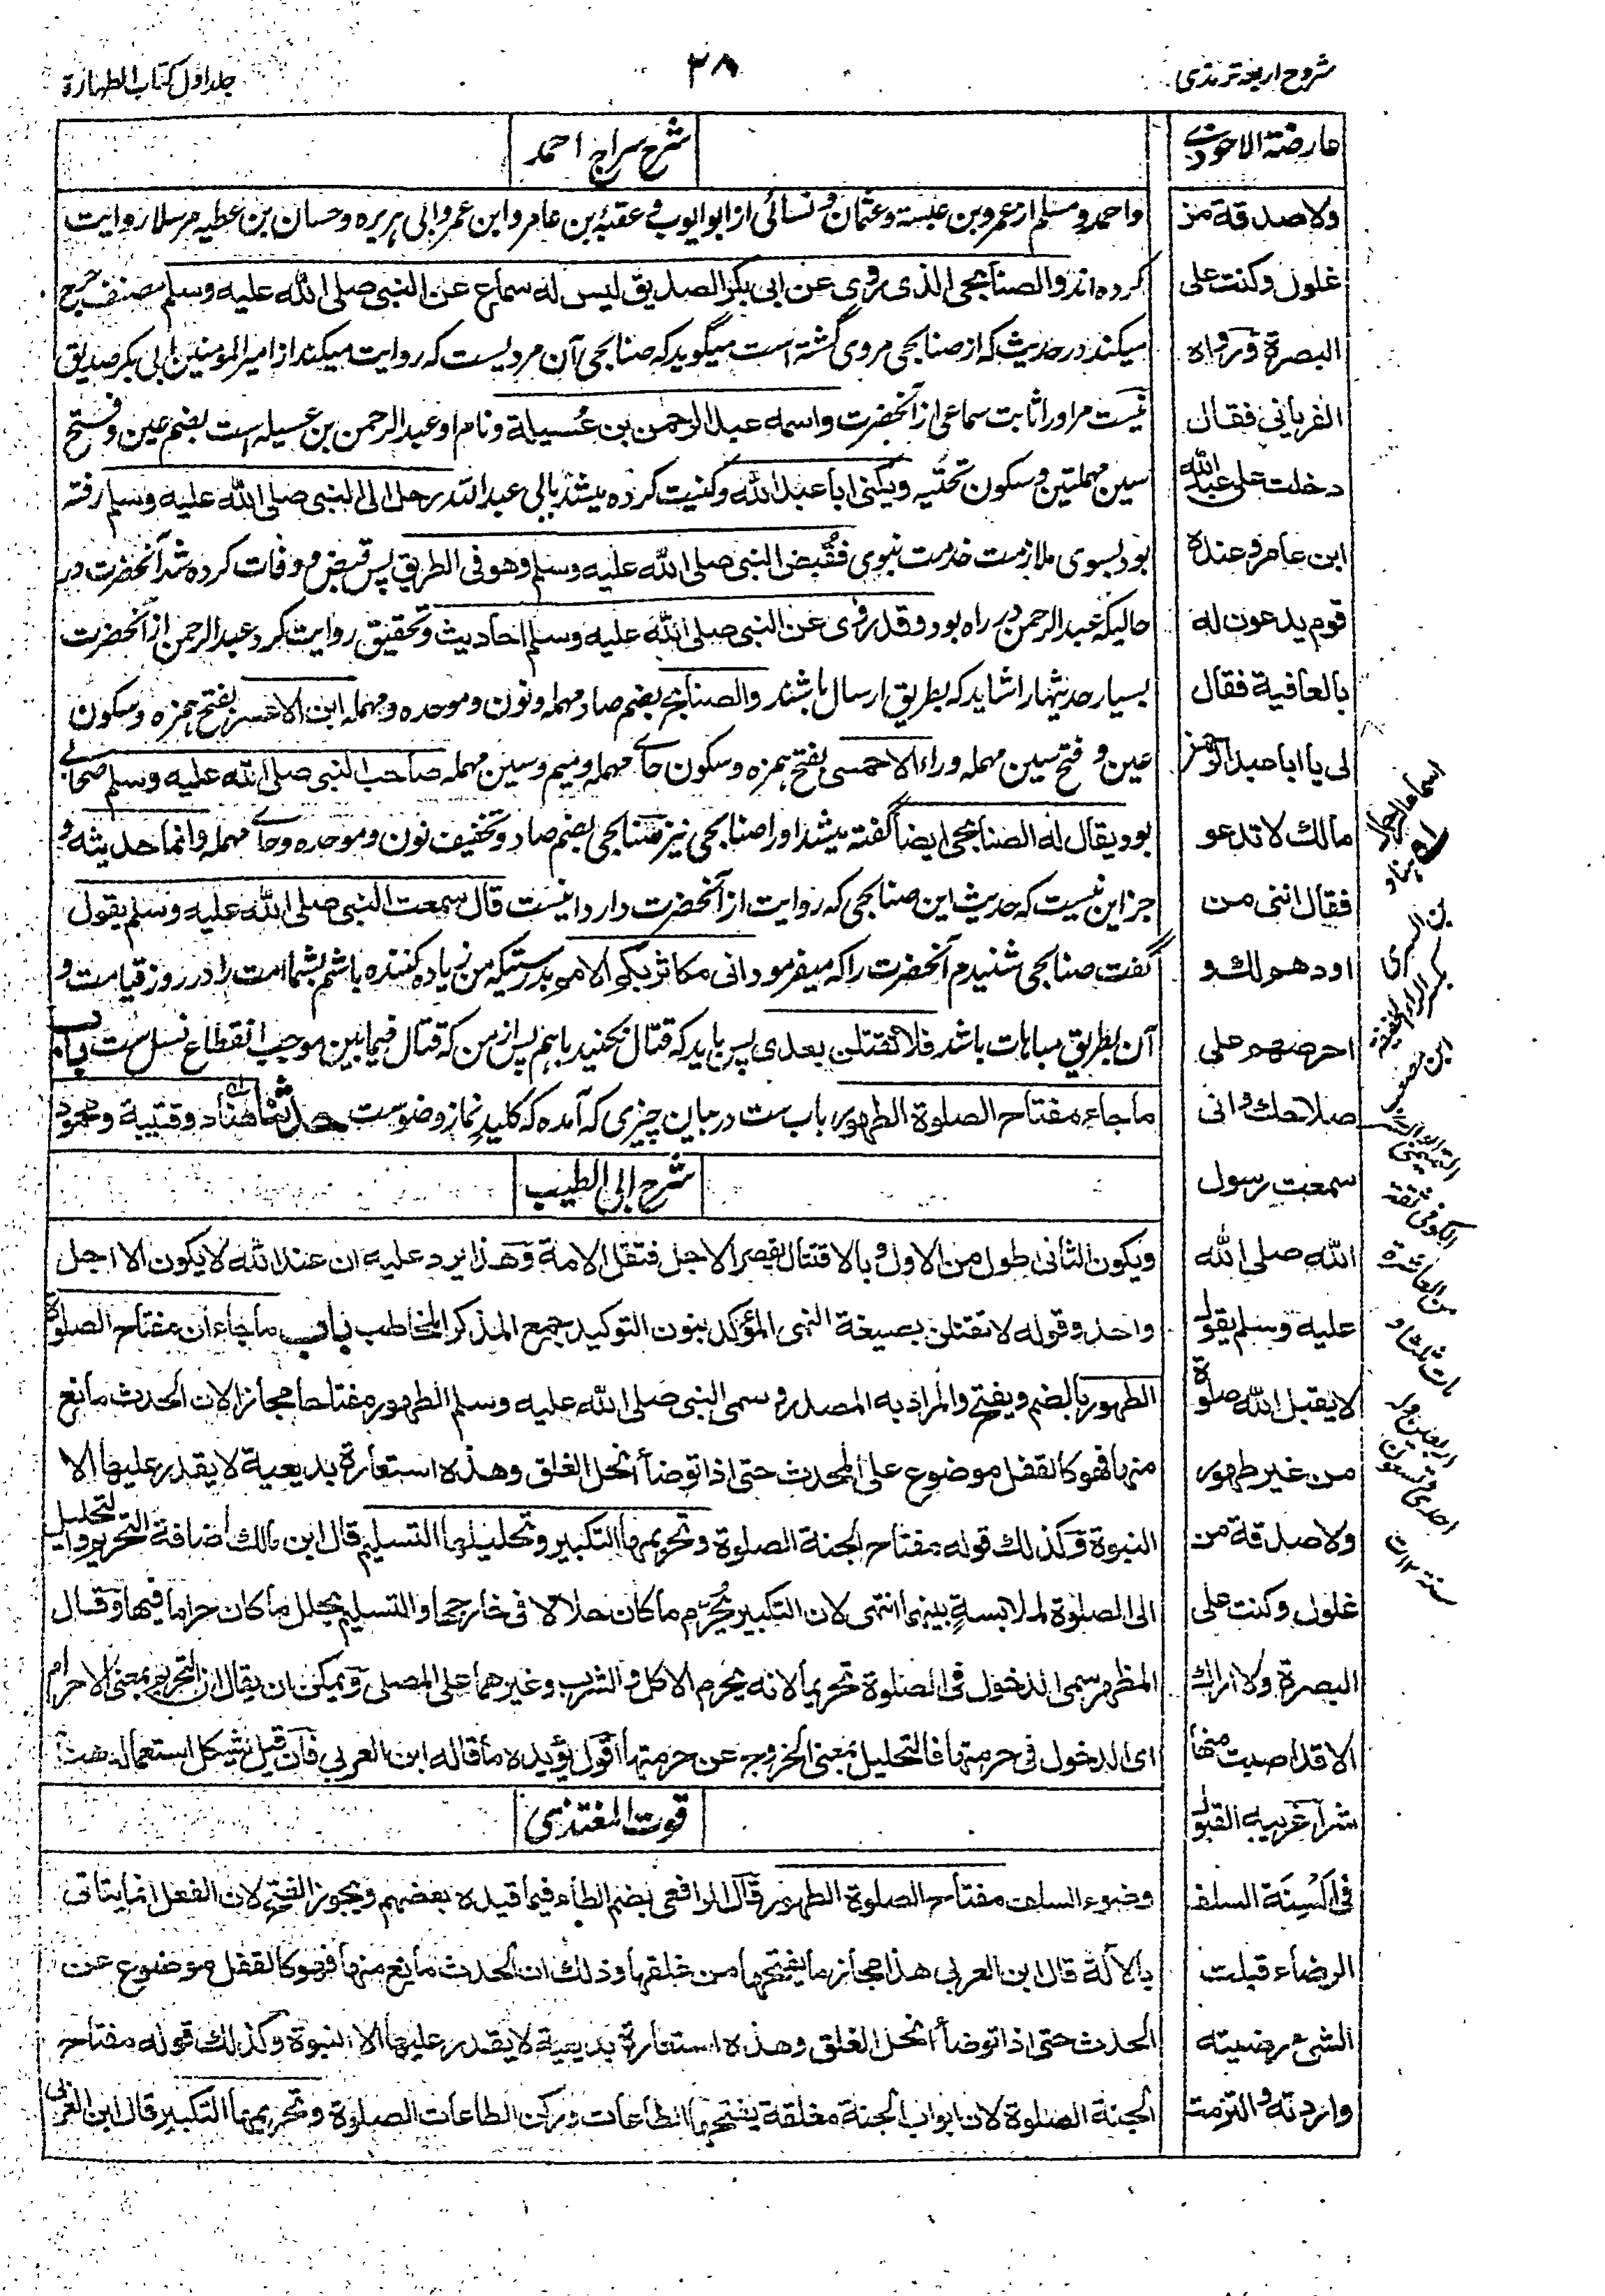 شروح اربعه ترمذی
۳۸
جلد اول کتاب الطهارة
عارضة الاحوذی
ولا صدقة من
غلول وكنت على
البصرة ورواه
الفريابي فقال
دخلت على عبد الله
ابن عامر وعنده
قوم يدعون له
بالعافية فقال
لى يا ابا عبد الرحمن
مالك لا تدعو
فقال اننى من
اودهم لك و
احرصهم على
صلاحك وانى
سمعت رسول
الله صلى الله
عليه وسلم يقول
لا يقبل الله صلوة
من غير طهور
ولا صدقة من
غلول وكنت على
البصرة ولا اراك
الا قد اصبت منها
شرا غريبه القبول
فى السنة السلف
الرضاء قبلت
الشئ رضيته
واردته والتزمت
شرح سراج احمد
واحمد ومسلم از عمرو بن عبسة وعثمان ونسائی از ابو ایوب و عقبه بن عامر وابن عمر وابی هریره وحسان بن عطیه مرسلا روایت
کرده اند والصنابحى الذى روى عن ابى بكر الصديق ليس له سماع عن النبى صلى الله عليه وسلم مصنف جرح
میکند در حدیث که از صنابحی مروی گشته است میگوید که صنابحی آن مردیست که روایت میکند از امیر المومنین ابی بکر صدیق
نیست مر او را ثابت سماعی از آنحضرت واسمه عبد الرحمن بن عُسيلة ونام او عبد الرحمن بن عسیله است بضم عین و فتح
سین مهملتین وسکون تحتیه ويكنى ابا عبد الله وکنیت کرده میشد بابی عبد الله رحل الى النبى صلى الله عليه وسلم رفته
بود بسوی ملازمت خدمت نبوی فقُبض النبى صلى الله عليه وسلم وهو فى الطريق پس قبض و وفات کرده شد آنحضرت در
حالیکه عبد الرحمن در راه بود وقد روى عن النبى صلى الله عليه وسلم احاديث وتحقیق روایت کرد عبد الرحمن از آنحضرت
بسیار حدیثها را شاید که بطریق ارسال باشند والصنابح بضم صاد مهمله ونون وموحده ومهمله ابن الاعسر بفتح همزه وسکون
عین و فتح سین مهمله وراء الاحمسى بفتح همزه وسکون حای مهمله ومیم وسین مهمله صاحب النبى صلى الله عليه وسلم صحابی
بود ويقال له الصنابحى ايضا گفته میشد او را صنابحی نیز صنابحی بضم صاد وتخفیف نون وموحده وحای مهمله وانما حديثه و
جز این نیست که حدیث این صنابحی که روایت از آنحضرت دارد اینست قال سمعت النبى صلى الله عليه وسلم يقول
گفت صنابحی شنیدم آنحضرت را که میفرمود انى مكاثر بكم الامم بدرستیکه من زیاده کننده باشم بشما امت را در روز قیامت و
آن بطریق مباهات باشد فلا تقتتلن بعدى پس باید که قتال نکنید باهم پس از من که قتال فیمابین موجب انقطاع نسل ست باب
ما جاء مفتاح الصلوة الطهور باب ست در بیان چیزی که آمده که کلید نماز وضوست حدثنا هناد وقتيبة ومحمود
شرح ابی الطیب
ويكون الثانى طول من الاول وبالاقتتال يقصر الاجل فتقل الامة وهذا يرد عليه ان عند الله لا يكون الا اجل
واحد وقوله لا تقتلن بصيغة النهى المؤكد بنون التوكيد جميع المذكر المخاطب باب ما جاء ان مفتاح الصلوة
الطهور بالضم ويفتح والمراد به المصدر وسمى النبى صلى الله عليه وسلم الطهور مفتاحا مجازا لان الحدث مانع
منها فهو كالقفل موضوع على المحدث حتى اذا توضأ انحل الغلق وهذه استعارة بديعية لا يقدر عليها الا
النبوة وكذلك قوله مفتاح الجنة الصلوة وتحريمها التكبير وتحليلها التسليم قال ابن مالك اضافة التحريم والتحليل
الى الصلوة لملابسة بينهما انتهى لان التكبير يُحرّم ما كان حلالا فى خارجها والتسليم يحلل ما كان حراما فيها وقال
المظهر سمى الدخول فى الصلوة تحريما لانه يحرم الاكل والشرب وغيرهما على المصلى ويمكن ان يقال ان التحريم بمعنى الاحرام
اى الدخول فى حرمتها فالتحليل بمعنى الخروج عن حرمتها اقول يؤيده ما قاله ابن العربي فان قيل يشكل استعمال هذا
قوت المغتذی
وضوء السلف مفتاح الصلوة الطهور قال الرافعى بضم الطاء فيما قيده بعضهم ويجوز الفتح لان الفعل انما يتاتى
بالآلة قال ابن العربي هذا مجاز ما يفتحها من غلقها وذلك ان الحدث مانع منها فهو كالقفل موضوع عن
الحدث حتى اذا توضأ انحل الغلق وهذه استعارة بديعية لا يقدر عليها الا النبوة وكذلك قوله مفتاح
الجنة الصلوة لان ابواب الجنة مغلقة يفتحها الطاعات وركن الطاعات الصلوة وتحريمها التكبير قال ابن العربى
اسماء الرجال
بن السرى
التميمى
الكوفى ثقة
من العاشرة